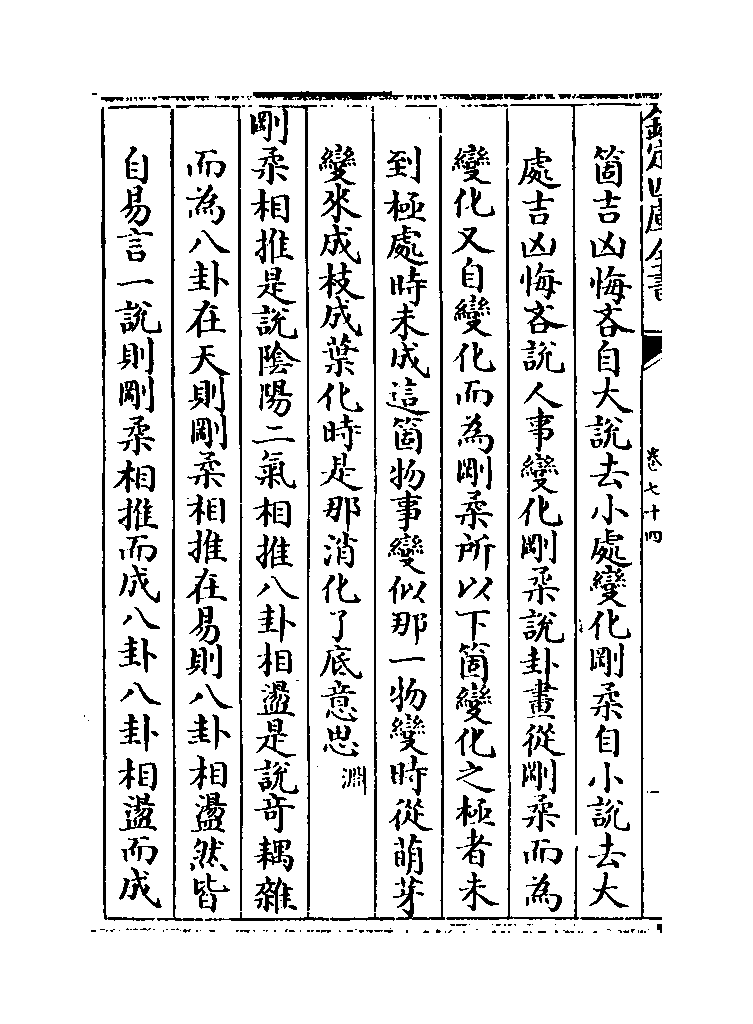 欽定四庫全書
卷七十四
箇吉凶悔吝自大說去小處變化剛柔自小說去大
處吉凶悔吝說人事變化剛柔說卦畫從剛柔而為
變化又自變化而為剛柔所以下箇變化之極者未
到極處時未成這箇物事變似那一物變時從萌芽
變來成枝成葉化時是那消化了底意思淵
剛柔相推是說陰陽二氣相推八卦相盪是說竒耦雜
而為八卦在天則剛柔相推在易則八卦相盪然皆
自易言一說則剛柔相推而成八卦八卦相盪而成